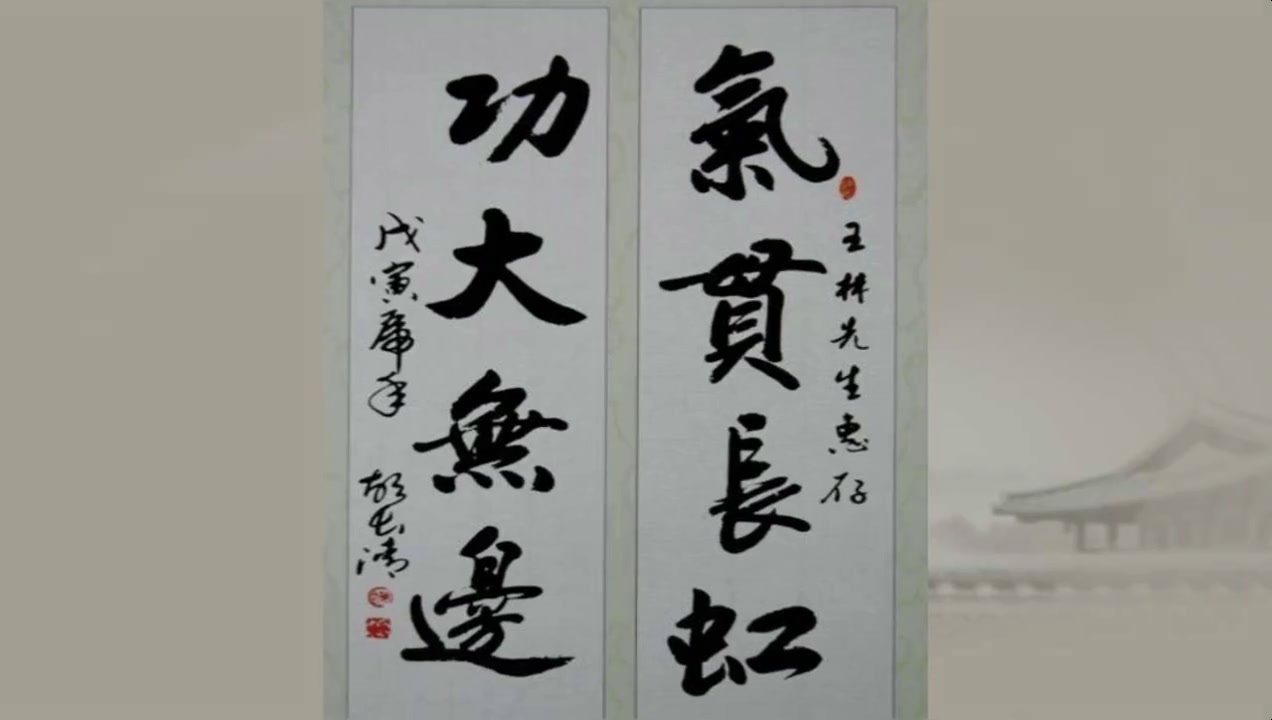 氣貫長虹
王林先生惠存
功大無邊
戊寅虎年
胡长清